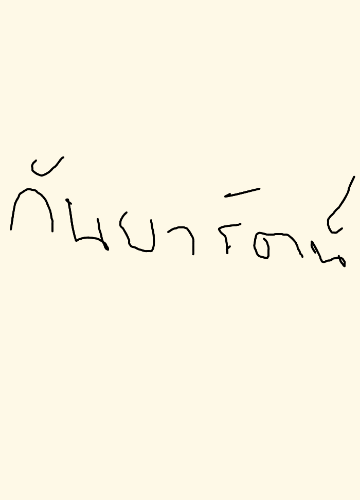 กันยารัตน์